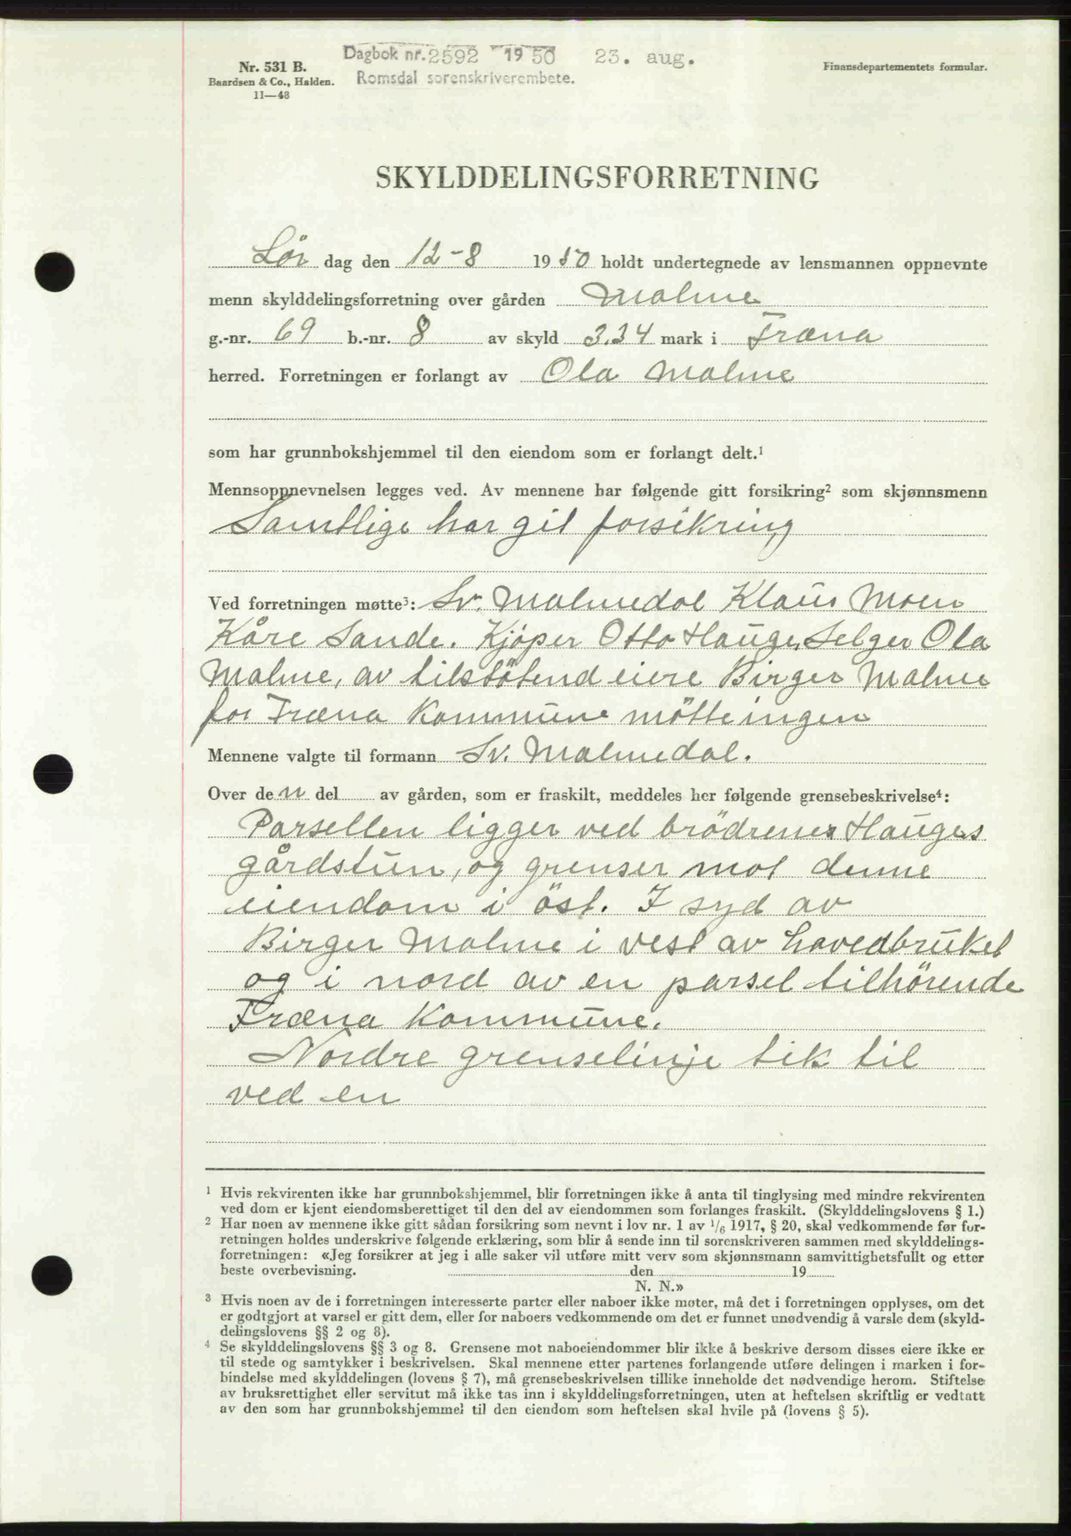 Dagbok nr. 2592 1950 23. aug.
Romsdal sorenskriverembete.
Nr. 531 B.
Baardsen & Co., Halden.
11—48
Finansdepartementets formular.
SKYLDDELINGSFORRETNING
Lør dag den 12-8 1950 holdt undertegnede av lensmannen oppnevnte
menn skylddelingsforretning over gården Malme
g.-nr. 69 b.-nr. 8 av skyld 3.34 mark i Fræna
herred. Forretningen er forlangt av Ola Malme
som har grunnbokshjemmel til den eiendom som er forlangt delt.¹
Mennsoppnevnelsen legges ved. Av mennene har følgende gitt forsikring² som skjønnsmenn
Samtlige har git forsikring
Ved forretningen møtte³: Sv. Malmedal Klaus Moen
Kåre Sande. Kjöper Otto Hauge, Selger Ola
Malme, av tilstötend eiere Birger Malme
for Fræna Kommune mötte ingen
Mennene valgte til formann Sv. Malmedal.
Over den del av gården, som er fraskilt, meddeles her følgende grensebeskrivelse⁴:
Parsellen ligger ved brödrenes Hauges
gårdstun, og grenser mot denne
eiendom i öst. I syd av
Birger Malme i vest av hovedbruket
og i nord av en parsel tilhörende
Fræna Kommune.
Nordre grenselinje tik til
ved en
¹ Hvis rekvirenten ikke har grunnbokshjemmel, blir forretningen ikke å anta til tinglysing med mindre rekvirenten
ved dom er kjent eiendomsberettiget til den del av eiendommen som forlanges fraskilt. (Skylddelingslovens § 1.)
² Har noen av mennene ikke gitt sådan forsikring som nevnt i lov nr. 1 av 1/6 1917, § 20, skal vedkommende før for-
retningen holdes underskrive følgende erklæring, som blir å sende inn til sorenskriveren sammen med skylddelings-
forretningen: «Jeg forsikrer at jeg i alle saker vil utføre mitt verv som skjønnsmann samvittighetsfullt og etter
beste overbevisning. den 19
N. N.»
³ Hvis noen av de i forretningen interesserte parter eller naboer ikke møter, må det i forretningen opplyses, om det
er godtgjort at varsel er gitt dem, eller for naboers vedkommende om det er funnet unødvendig å varsle dem (skyld-
delingslovens §§ 2 og 8).
⁴ Se skylddelingslovens §§ 3 og 8. Grensene mot naboeiendommer blir ikke å beskrive dersom disses eiere ikke er
til stede og samtykker i beskrivelsen. Skal mennene etter partenes forlangende utføre delingen i marken i for-
bindelse med skylddelingen (lovens § 7), må grensebeskrivelsen tillike inneholde det nødvendige herom. Stiftelse
av bruksrettighet eller servitut må ikke tas inn i skylddelingsforretningen, uten at heftelsen skriftlig er vedtatt
av den som har grunnbokshjemmel til den eiendom som heftelsen skal hvile på (lovens § 5).